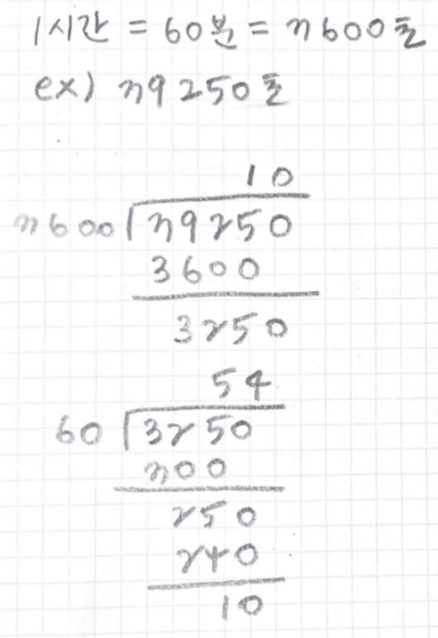 1시간 = 60분 = 3600초
ex) 39250초
10
3600)39250
3600
3250
54
60)3250
300
250
240
10